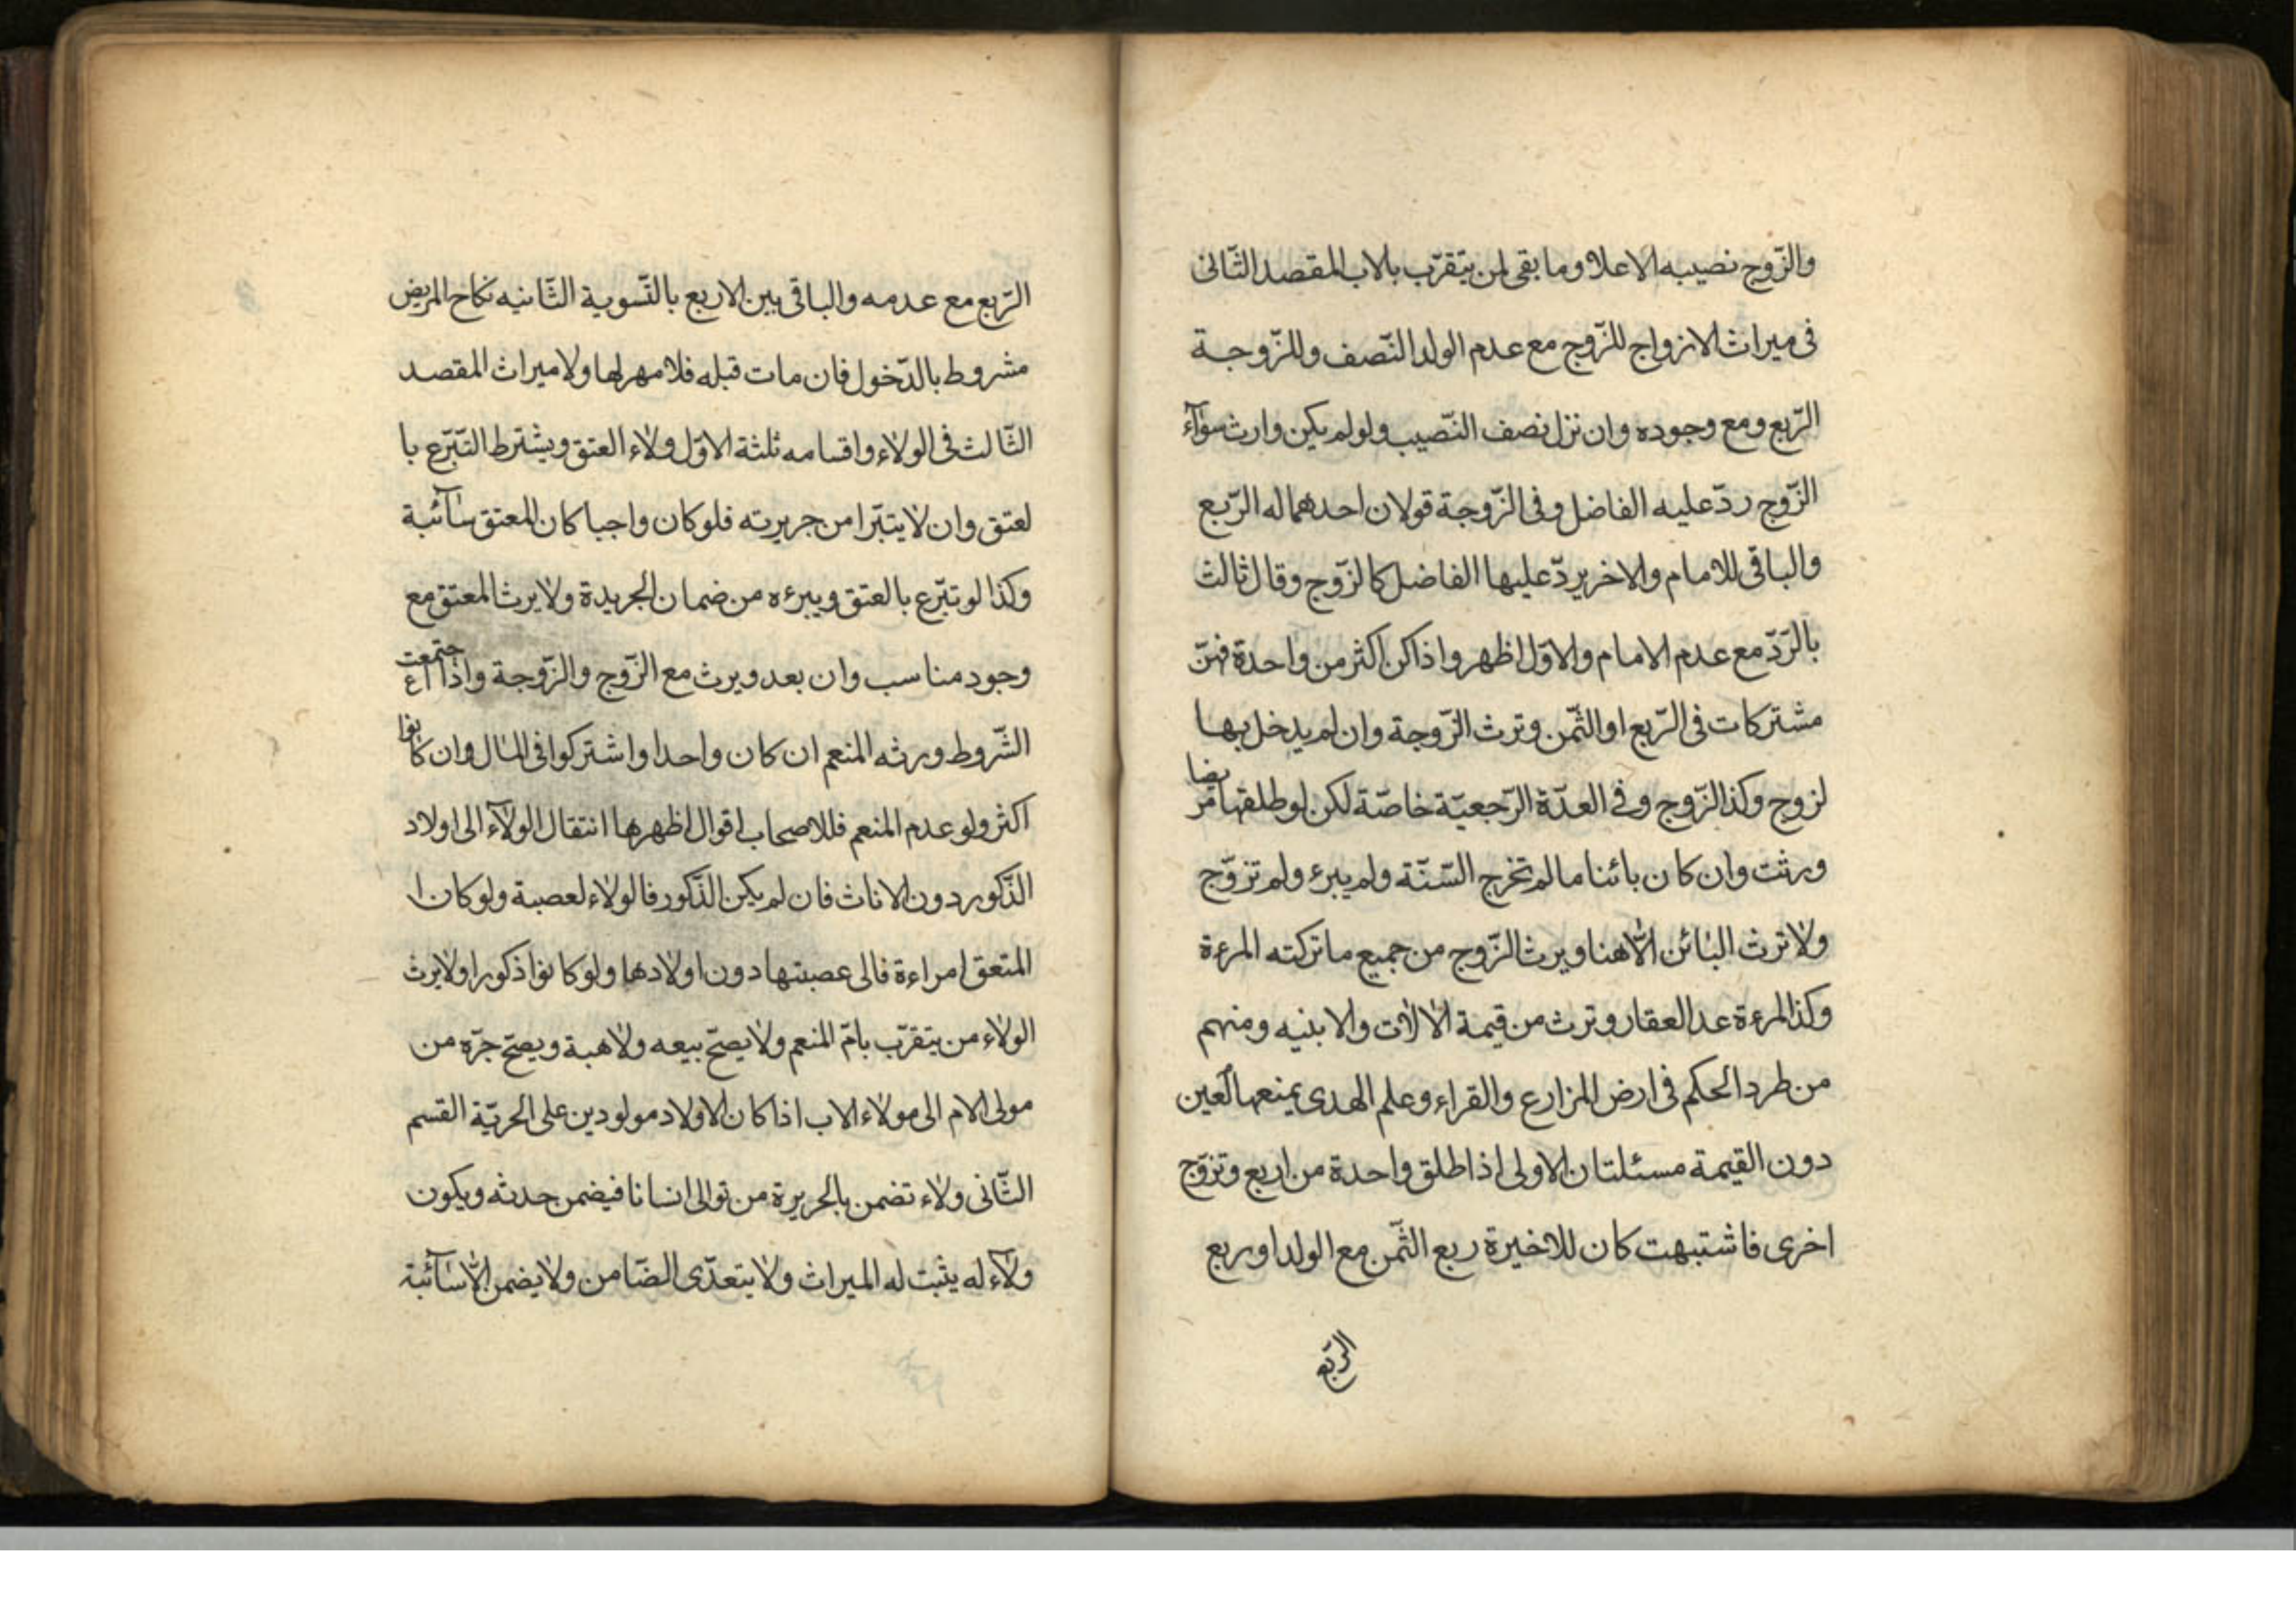 والزّوج نصيبه الاعلا وما بقى لمن يتقرّب بالاب المقصد الثّانى
فى ميراث الازواج للزّوج مع عدم الولد النّصف وللزّوجة
الرّبع ومع وجوده وان نزل نصف النّصيب ولو لم يكن وارث سوآء
الزّوج ردّ عليه الفاضل وفى الزّوجة قولان احدهما له الرّبع
والباقى للامام والاخر يردّ عليها الفاضل كالزّوج وقال ثالث
بالرّدّ مع عدم الامام والاوّل اظهر واذا كن اكثر من واحدة فهنّ
مشتركات فى الرّبع او الثّمن وترث الزّوجة وان لم يدخل بها
لزوج وكذا الزّوج وفى العدّة الرّجعيّة خاصّة لكن لو طلقها مريضا
ورثت وان كان بائنا مالم تخرج السّنّة ولم يبرء ولم تزوّج
ولا ترث البائن الّا هنا ويرث الزّوج من جميع ما تركته المرءة
وكذا المرءة عدا العقار وترث من قيمة الالات والابنيه ومنهم
من طرد الحكم فى ارض المزارع والقراء وعلم الهدى يمنعها العين
دون القيمة مسئلتان الاولى اذا طلق واحدة من اربع وتزوّج
اخرى فاشتبهت كان للاخيرة ربع الثّمن مع الولد او ربع
الرّبع
الرّبع مع عدمه والباقى بين الاربع بالتّسوية الثّانيه نكاح المريض
مشروط بالدّخول فان مات قبله فلا مهر لها ولا ميراث المقصد
الثّالث فى الولاء واقسامه ثلثة الاوّل ولاء العتق ويشترط التّبرّع با
لعتق وان لا يتبّرا من جريرته فلو كان واجبا كان المعتق سآئبة
وكذا لو تبّرع بالعتق ويبرءه من ضمان الجريدة ولا يرث المعتق مع
وجود مناسب وان بعد ويرث مع الزّوج والزّوجة واذا اجتمعت
الشّروط ورثه المنعم ان كان واحدا واشتركوا فى المال وان كانوا
اكثر ولو عدم المنعم فللاصحاب اقوال اظهرها انتقال الولآء الى اولاد
الذّكور دون الاناث فان لم يكن الذّكور فالولاء لعصبة ولو كان ا
المتعق امراءة فالى عصبتها دون اولادها ولو كانوا ذكورا ولا يرث
الولاء من يتقرّب بامّ المنعم ولا يصحّ بيعه ولا هبة ويصحّ جرّه من
مولى الام الى مولاء الاب اذا كان الاولاد مولودين على الحريّة القسم
الثّانى ولاء تضمن بالجريرة من توالى انسانا فيضمن حدثه ويكون
ولآء له يثبت له الميراث ولا يتعدّى الضّامن ولا يضمن الّا سآئبة